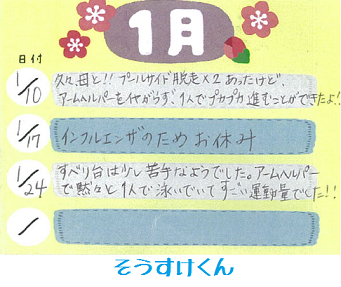 1月
日付
1/10
久々、母と!! プールサイド脱走×2あったけど、
アームヘルパーをイヤがらず、1人でプカプカ進むことができたよ!
1/17
インフルエンザのためお休み
1/24
すべり台は少し苦手なようでした。アームヘルパー
で黙々と1人で泳いでいてすごい運動量でした!!
/
そうすけくん